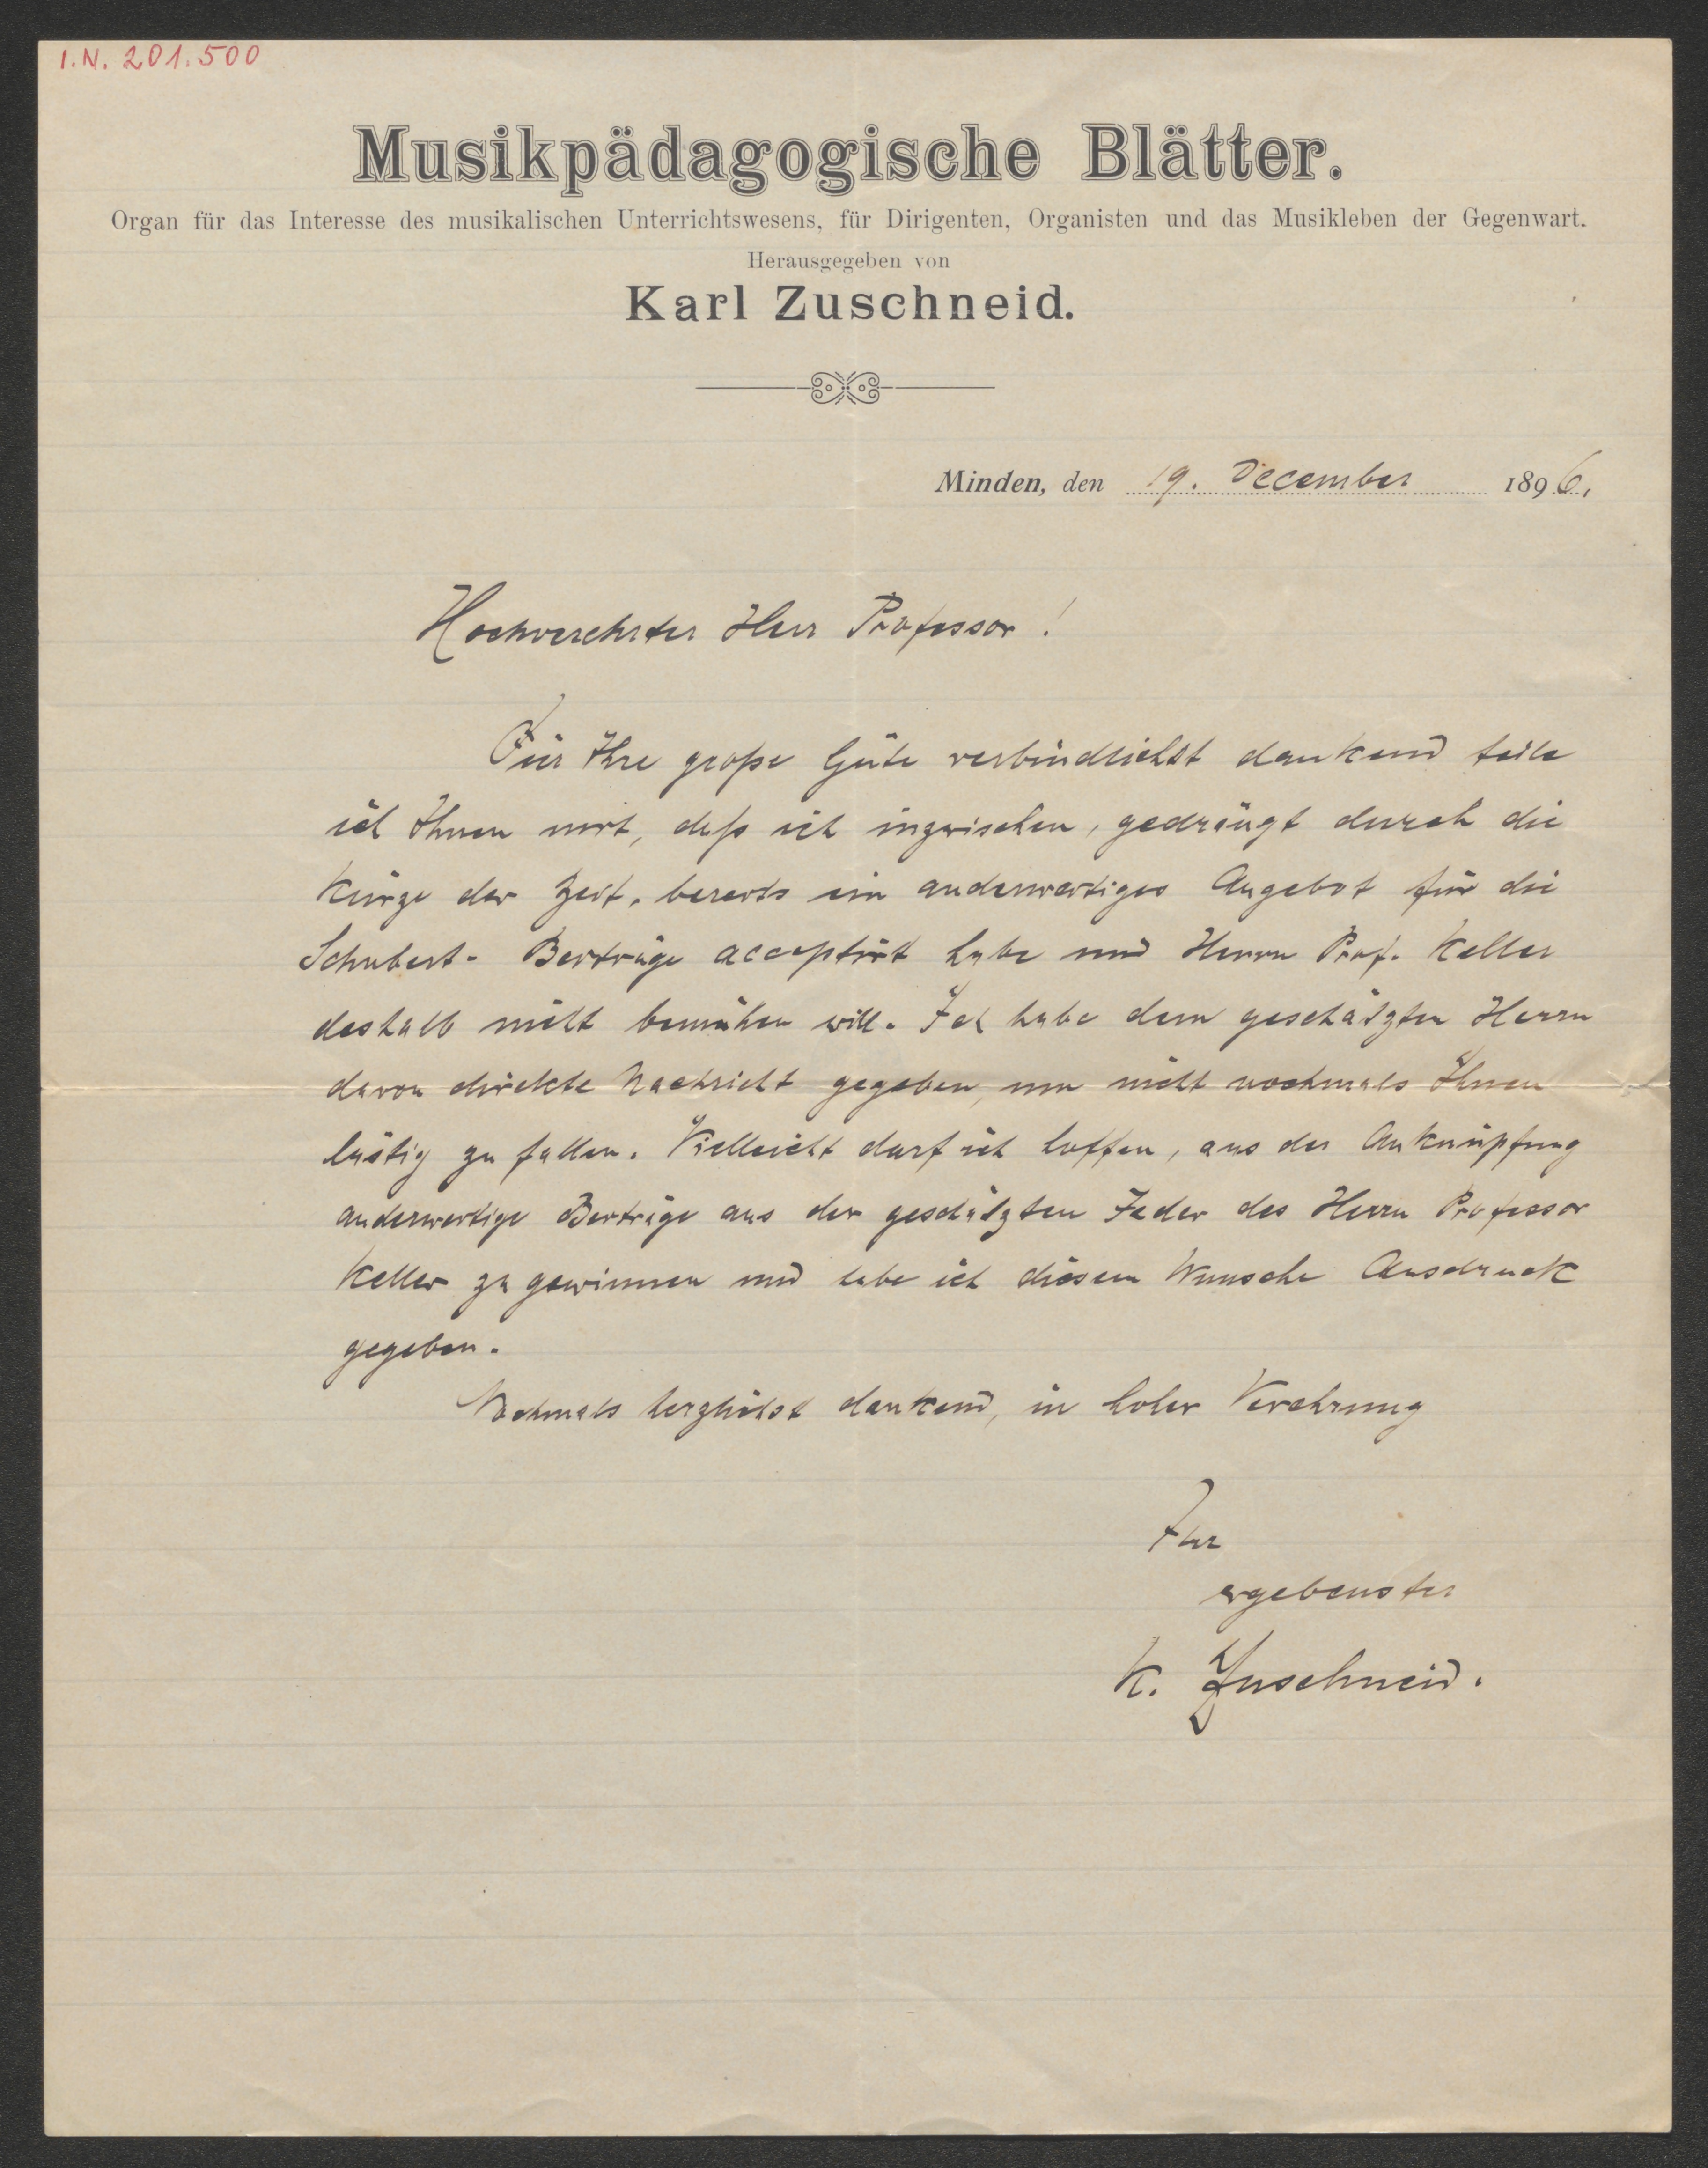 I.N. 201.500
Musikpädagogische Blätter.
Organ für das Interesse des musikalischen Unterrichtswesens, für Dirigenten, Organisten und das Musikleben der Gegenwart.
Herausgegeben von
Karl Zuschneid.
Minden, den 19. December 1896.
Hochverehrter Herr Professor!
Für Ihre große Güte verbindlichst dankend teile
ich Ihnen mit, daß ich inzwischen, gedrängt durch die
Kürze der Zeit, bereits ein anderweitiges Angebot für die
Schubert-Beiträge acceptirt habe und Herrn Prof. Keller
deshalb nicht bemühen will. Ich habe dem geschätzten Herrn
davon direkte Nachricht gegeben, um nicht nochmals Ihnen
lästig zu fallen. Vielleicht darf ich hoffen, aus der Anknüpfung
anderweitige Beiträge aus der geschätzten Feder des Herrn Professor
Keller zu gewinnen und habe ich diesem Wunsche Ausdruck
gegeben.
Nochmals herzlichst dankend, in hoher Verehrung
Ihr
ergebenster
K. Zuschneid.